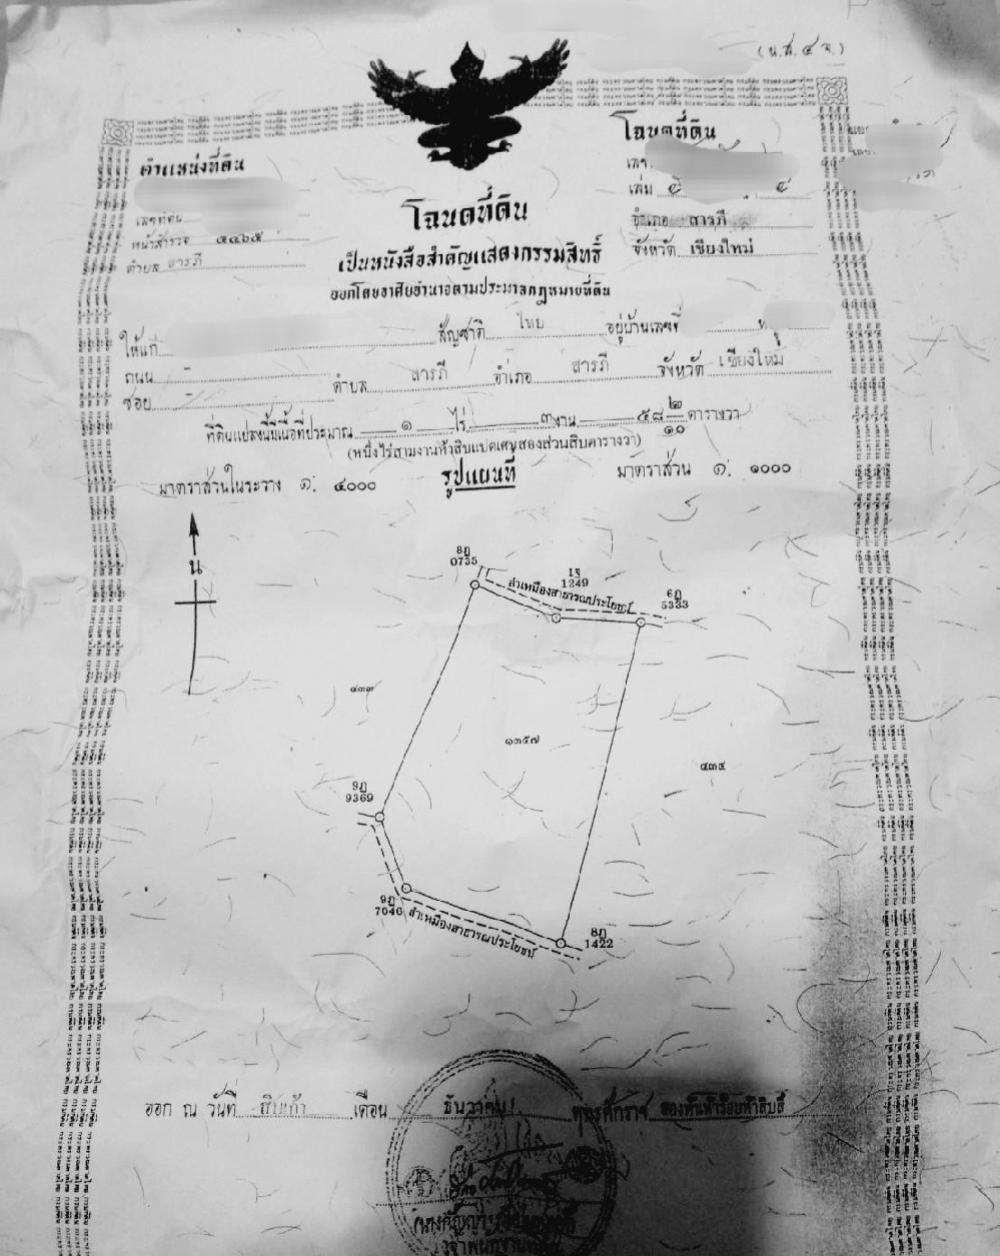 (น.ส.๔ จ.)
ตำแหน่งที่ดิน
เลขที่ดิน
หน้าสำรวจ ๕๔๖๕
ตำบล สารภี
โฉนดที่ดิน
เล่ม
อำเภอ สารภี
จังหวัด เชียงใหม่
โฉนดที่ดิน
เป็นหนังสือสำคัญแสดงกรรมสิทธิ์
ออกโดยอาศัยอำนาจตามประมวลกฎหมายที่ดิน
ให้แก่ สัญชาติ ไทย อยู่บ้านเลขที่
ถนน – ตำบล สารภี อำเภอ สารภี จังหวัด เชียงใหม่
ซอย –
ที่ดินแปลงนี้มีเนื้อที่ประมาณ ๑ ไร่ ๓ งาน ๕๘ ๒/๑๐ ตารางวา
(หนึ่งไร่สามงานห้าสิบแปดเศษสองส่วนสิบตารางวา)
รูปแผนที่
มาตราส่วนในระวาง ๑: ๔๐๐๐
มาตราส่วน ๑: ๑๐๐๐
น
8ฎ
0735
ลำเหมืองสาธารณประโยชน์
1249
6ฎ
5333
๔๓๓
๑๓๕๗
๔๓๔
9ฎ
9369
9ฎ
7046
ลำเหมืองสาธารณประโยชน์
8ฎ
1422
ออก ณ วันที่ สิบเก้า เดือน ธันวาคม พุทธศักราช สองพันห้าร้อยห้าสิบสี่